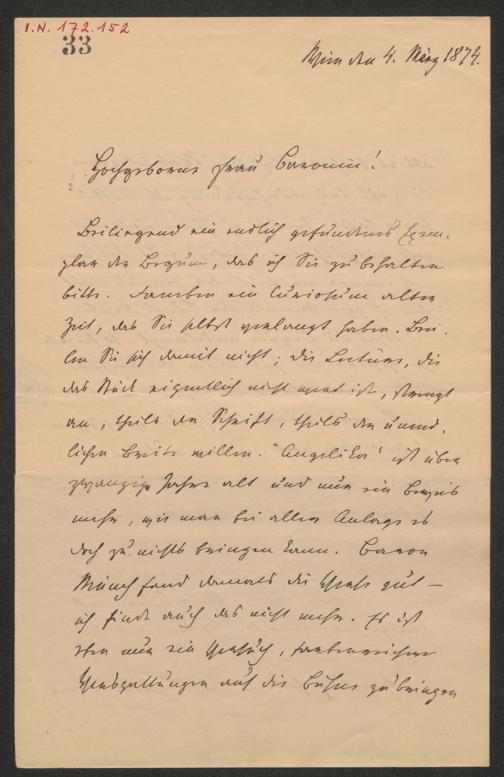 I.N. 172.152
33
Wien den 4. März 1874.
Hochgeborne Frau Baronin!
Beiliegend ein endlich gefundenes Exem-
plar der Begum, das ich Sie zu behalten
bitte. Daneben ein Curiosum alter
Zeit, das Sie selbst verlangt haben. Bei-
len Sie sich damit nicht; die Lectüre, die
das Stück eigentlich nicht werth ist, strengt
an, theils der Schrift, theils der unend-
lichen Breite willen. "Angelika" ist über
zwanzig Jahre alt und nur ein Beweis
mehr, wie man bei aller Anlage es
doch zu nichts bringen kann. Baron
Münch fand damals die Verse gut –
ich finde auch das nicht mehr. Es ist
eben nur ein Versuch, farbenreicher
auf die Bühne zu bringen